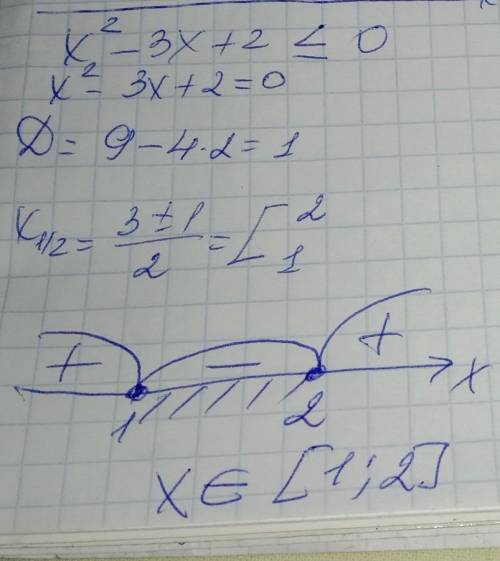 x² - 3x + 2 ≤ 0
x² - 3x + 2 = 0
D = 9 - 4·2 = 1
x₁/₂ = (3 ± 1)/2 = [ 2 1
+ − + x
1 2
x ∈ [1; 2]